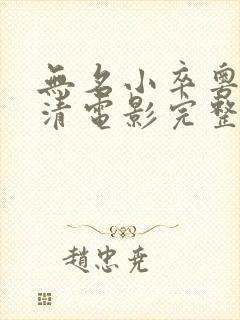 無名小卒粵
清電影完整
趙忠堯